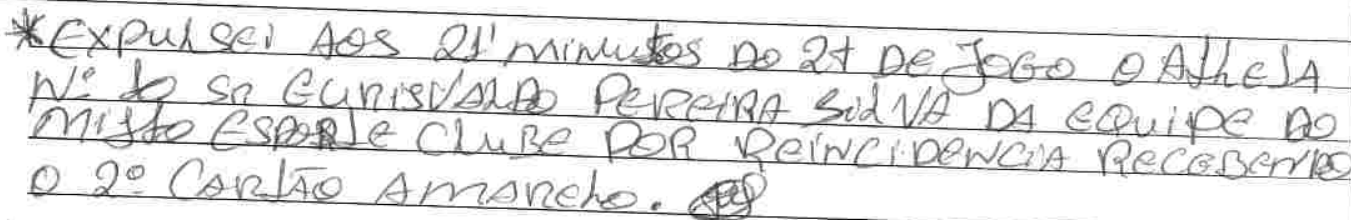 *Expulsei aos 21' minutos do 2t de Jogo o Athela
Nº 10 Sr Eurisvaldo Pereira Silva da equipe do
Misto Esporte Clube por reincidencia recebendo
o 2º Cartão Amarelo.